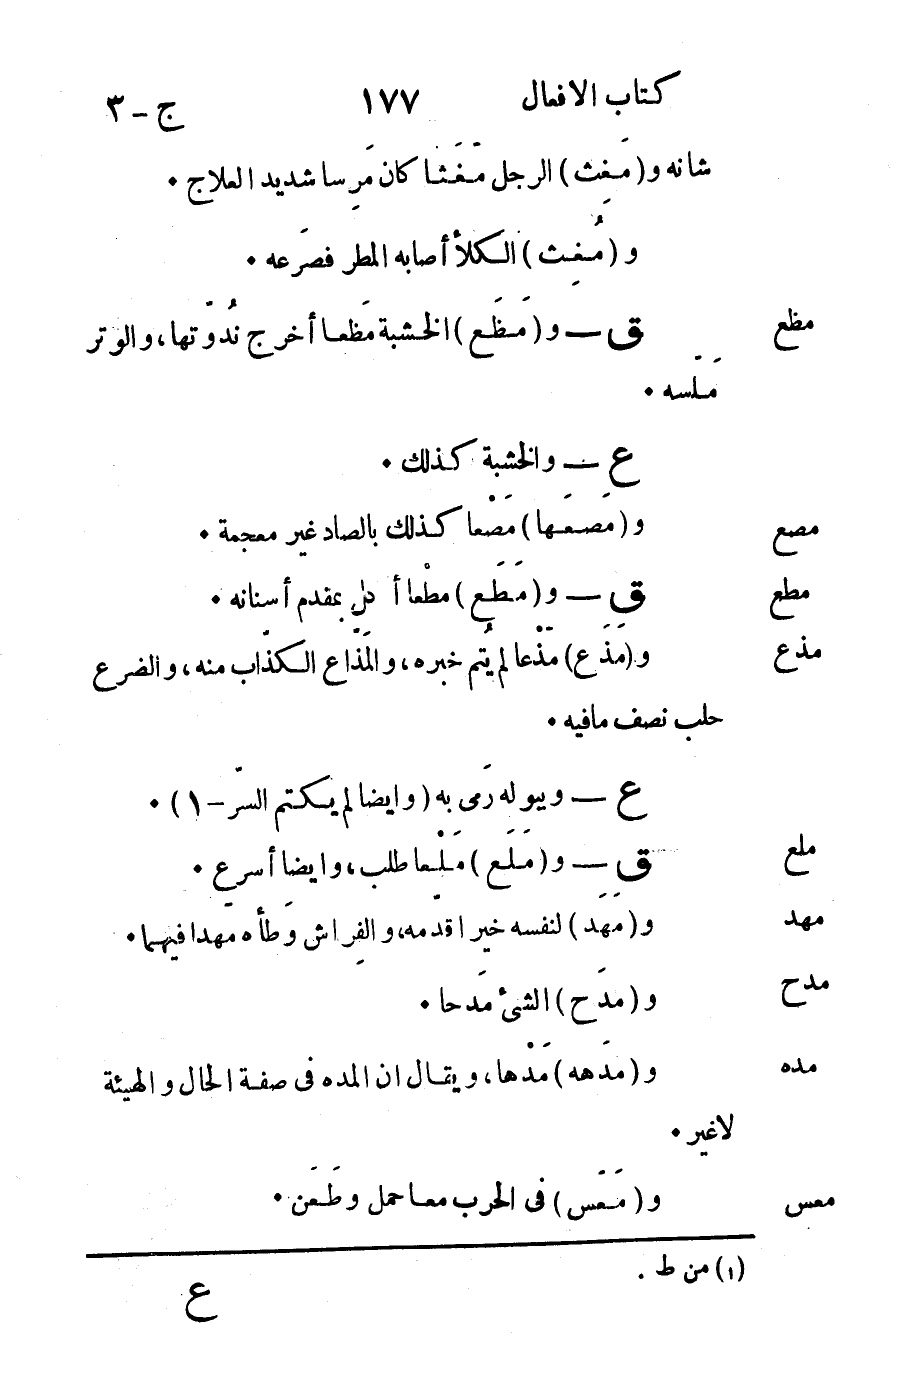 كتاب الافعال ١٧٧ ج - ٣
شانه و (مَغِث) الرجل مَغَثا كان مَرِسا شديد العلاج •
و (مُغِث) الكلأ أصابه المطر فصَرعه •
مظع ق — و (مَظَع) الخشبة مَظعا أخرج نُدُوّتها، والوَتر
مَلّسه •
ع — والخشبة كذلك •
مصع و (مَصَعَها) مَصْعا كذلك بالصاد غير معجمة •
مطع ق — و (مَطَع) مَطْعا أ كل بمقدم أسنانه •
مذع و (مَذَع) مَذْعا لم يُتم خبره، والمَذّاع الكذّاب منه، والضرع
حلب نصف مافيه •
ع — وببوله رَمى به (وايضا لم يكتم السرّ - ١) •
ملع ق — و (مَلَع) مَلْعا طلب، وايضا أسرع •
مهد و (مَهَد) لنفسه خيرا قدمه، والفِراش وَطّأه مَهدا فيهما •
مدح و (مدَح) الشئ مَدحا •
مده و (مدَهه) مَدْها، ويقال ان المده فى صفة الحال والهيئة
لاغير •
معس و (مَعَس) فى الحرب معسا حمل وطَعَن •
(١) من ط .
ع